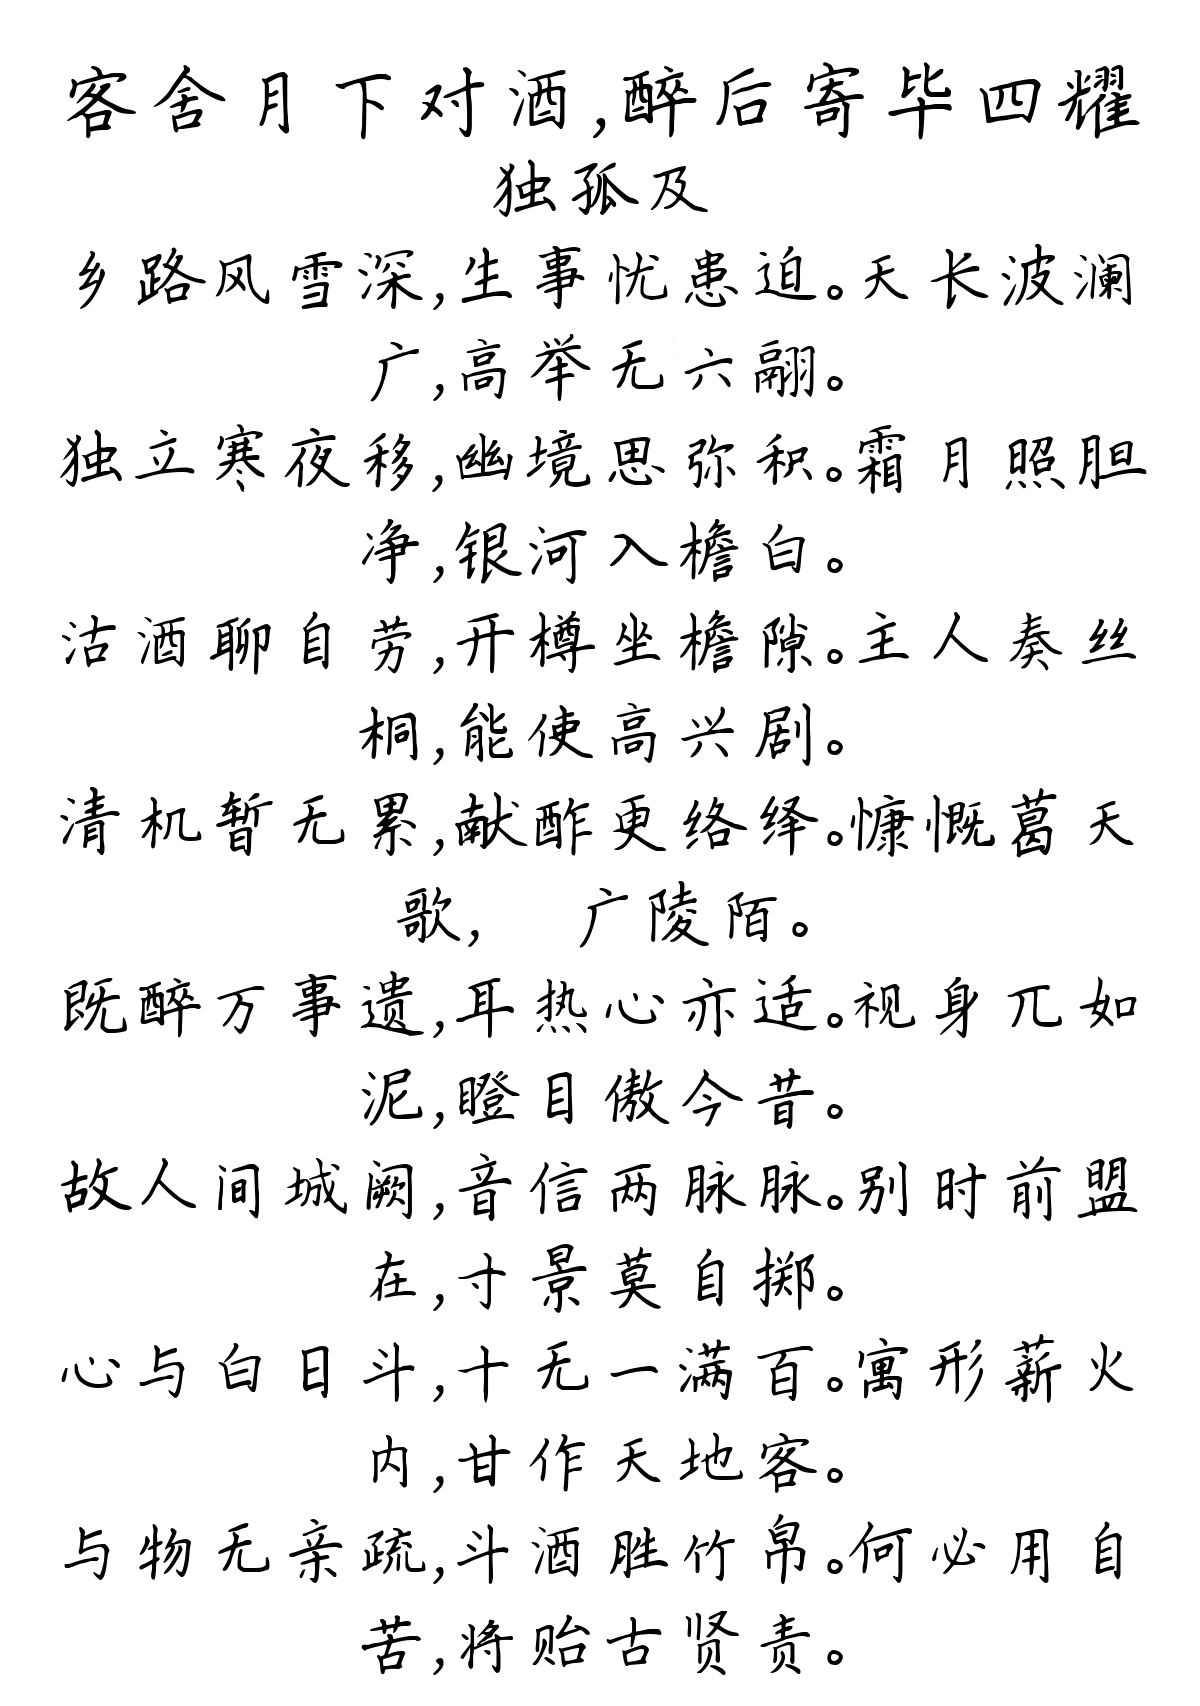 客舍月下对酒,醉后寄毕四耀
独孤及
乡路风雪深,生事忧患迫。天长波澜
广,高举无六翮。
独立寒夜移,幽境思弥积。霜月照胆
净,银河入檐白。
沽酒聊自劳,开樽坐檐隙。主人奏丝
桐,能使高兴剧。
清机暂无累,献酢更络绎。慷慨葛天
歌, 广陵陌。
既醉万事遗,耳热心亦适。视身兀如
泥,瞪目傲今昔。
故人间城阙,音信两脉脉。别时前盟
在,寸景莫自掷。
心与白日斗,十无一满百。寓形薪火
内,甘作天地客。
与物无亲疏,斗酒胜竹帛。何必用自
苦,将贻古贤责。